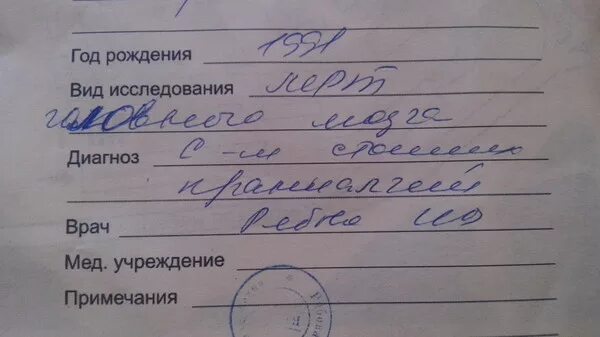 Год рождения 1991
Вид исследования МРТ
головного мозга
Диагноз С-м стойких
краниалгий
Врач
Мед. учреждение
Примечания